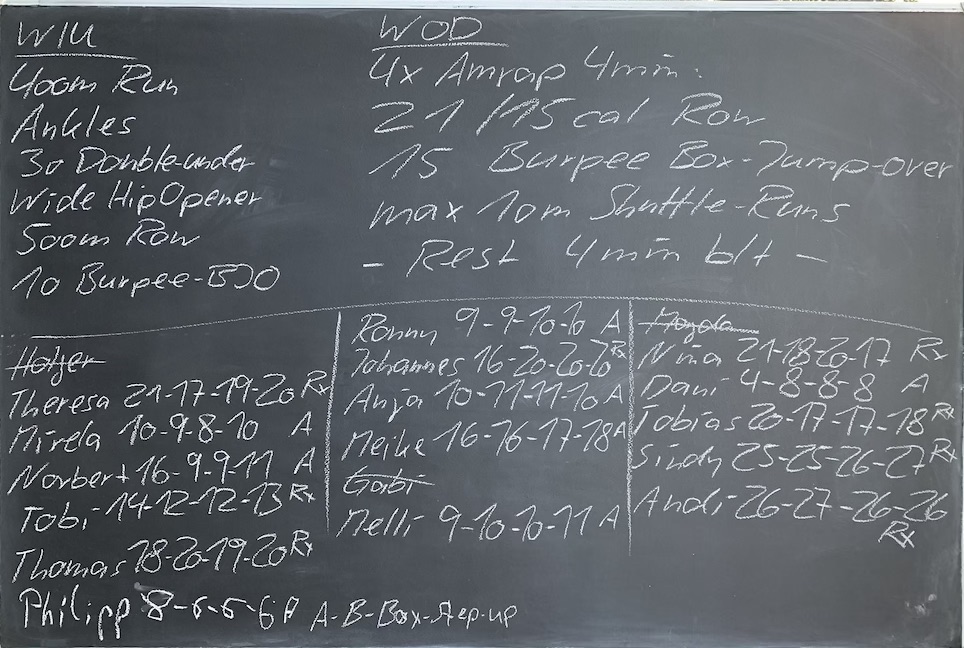 WIU
400m Run
Ankles
30 Double-under
Wide Hip Opener
500m Row
10 Burpee-BJO
WOD
4x Amrap 4min:
21/15 cal Row
15 Burpee Box-Jump-over
max 10m Shuttle-Runs
- Rest 4min b/t -
Holger
Theresa 21-17-19-20 Rx
Mirela 10-9-8-10 A
Norbert 16-9-9-11 A
Tobi 14-12-12-13 Rx
Thomas 18-20-19-20 Rx
Philipp 8-6-6-6 A-B-Box-Step-up
Ronny 9-9-10-10 A
Johannes 16-20-20-20 Rx
Anja 10-11-11-10 A
Meike 16-16-17-18 A
Gabi
Melli 9-10-10-11 A
Magda
Nina 21-18-20-17 Rx
Dani 4-8-8-8 A
Tobias 20-17-17-18 Rx
Sindy 25-25-26-27 Rx
Andi 26-27-26-26
Rx